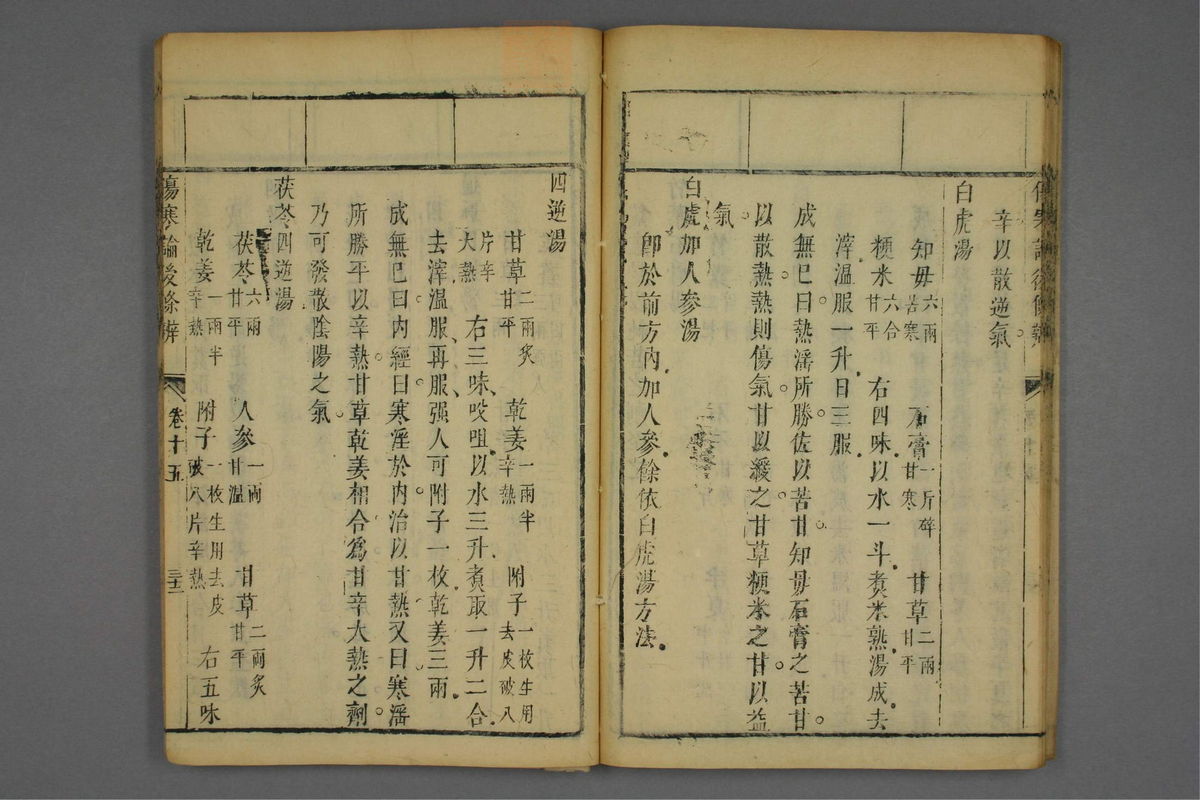 傷寒論後條辨
辛以散逆氣
白虎湯
知母六兩苦寒 石膏一斤碎甘寒 甘草二兩甘平
粳米六合甘平 右四味以水一斗煑米熟湯成去
滓溫服一升日三服
成無已曰熱淫所勝佐以苦甘知毋石膏之苦甘
以散熱熱則傷氣甘以緩之甘草粳米之甘以益
氣
白虎加人參湯
卽於前方內加人參餘依白虎湯方法
四逆湯
甘草二兩炙甘平 乾姜一兩半辛熱 附子一枚生用去皮破八
片辛大熱 右三味㕮咀以水三升煑取一升二合
去滓溫服再服强人可附子一枚乾姜三兩
成無巳曰內經曰寒淫於內治以甘熱又曰寒淫
所勝平以辛熱甘草乾姜相合爲甘辛大熱之劑
乃可發散陰陽之氣
茯苓四逆湯
茯苓六兩甘平 人參一兩甘溫 甘草二兩炙甘平
乾姜一兩半辛熱 附子一枚生用去皮破八片辛熱 右五味
傷寒論後條辨 卷十五